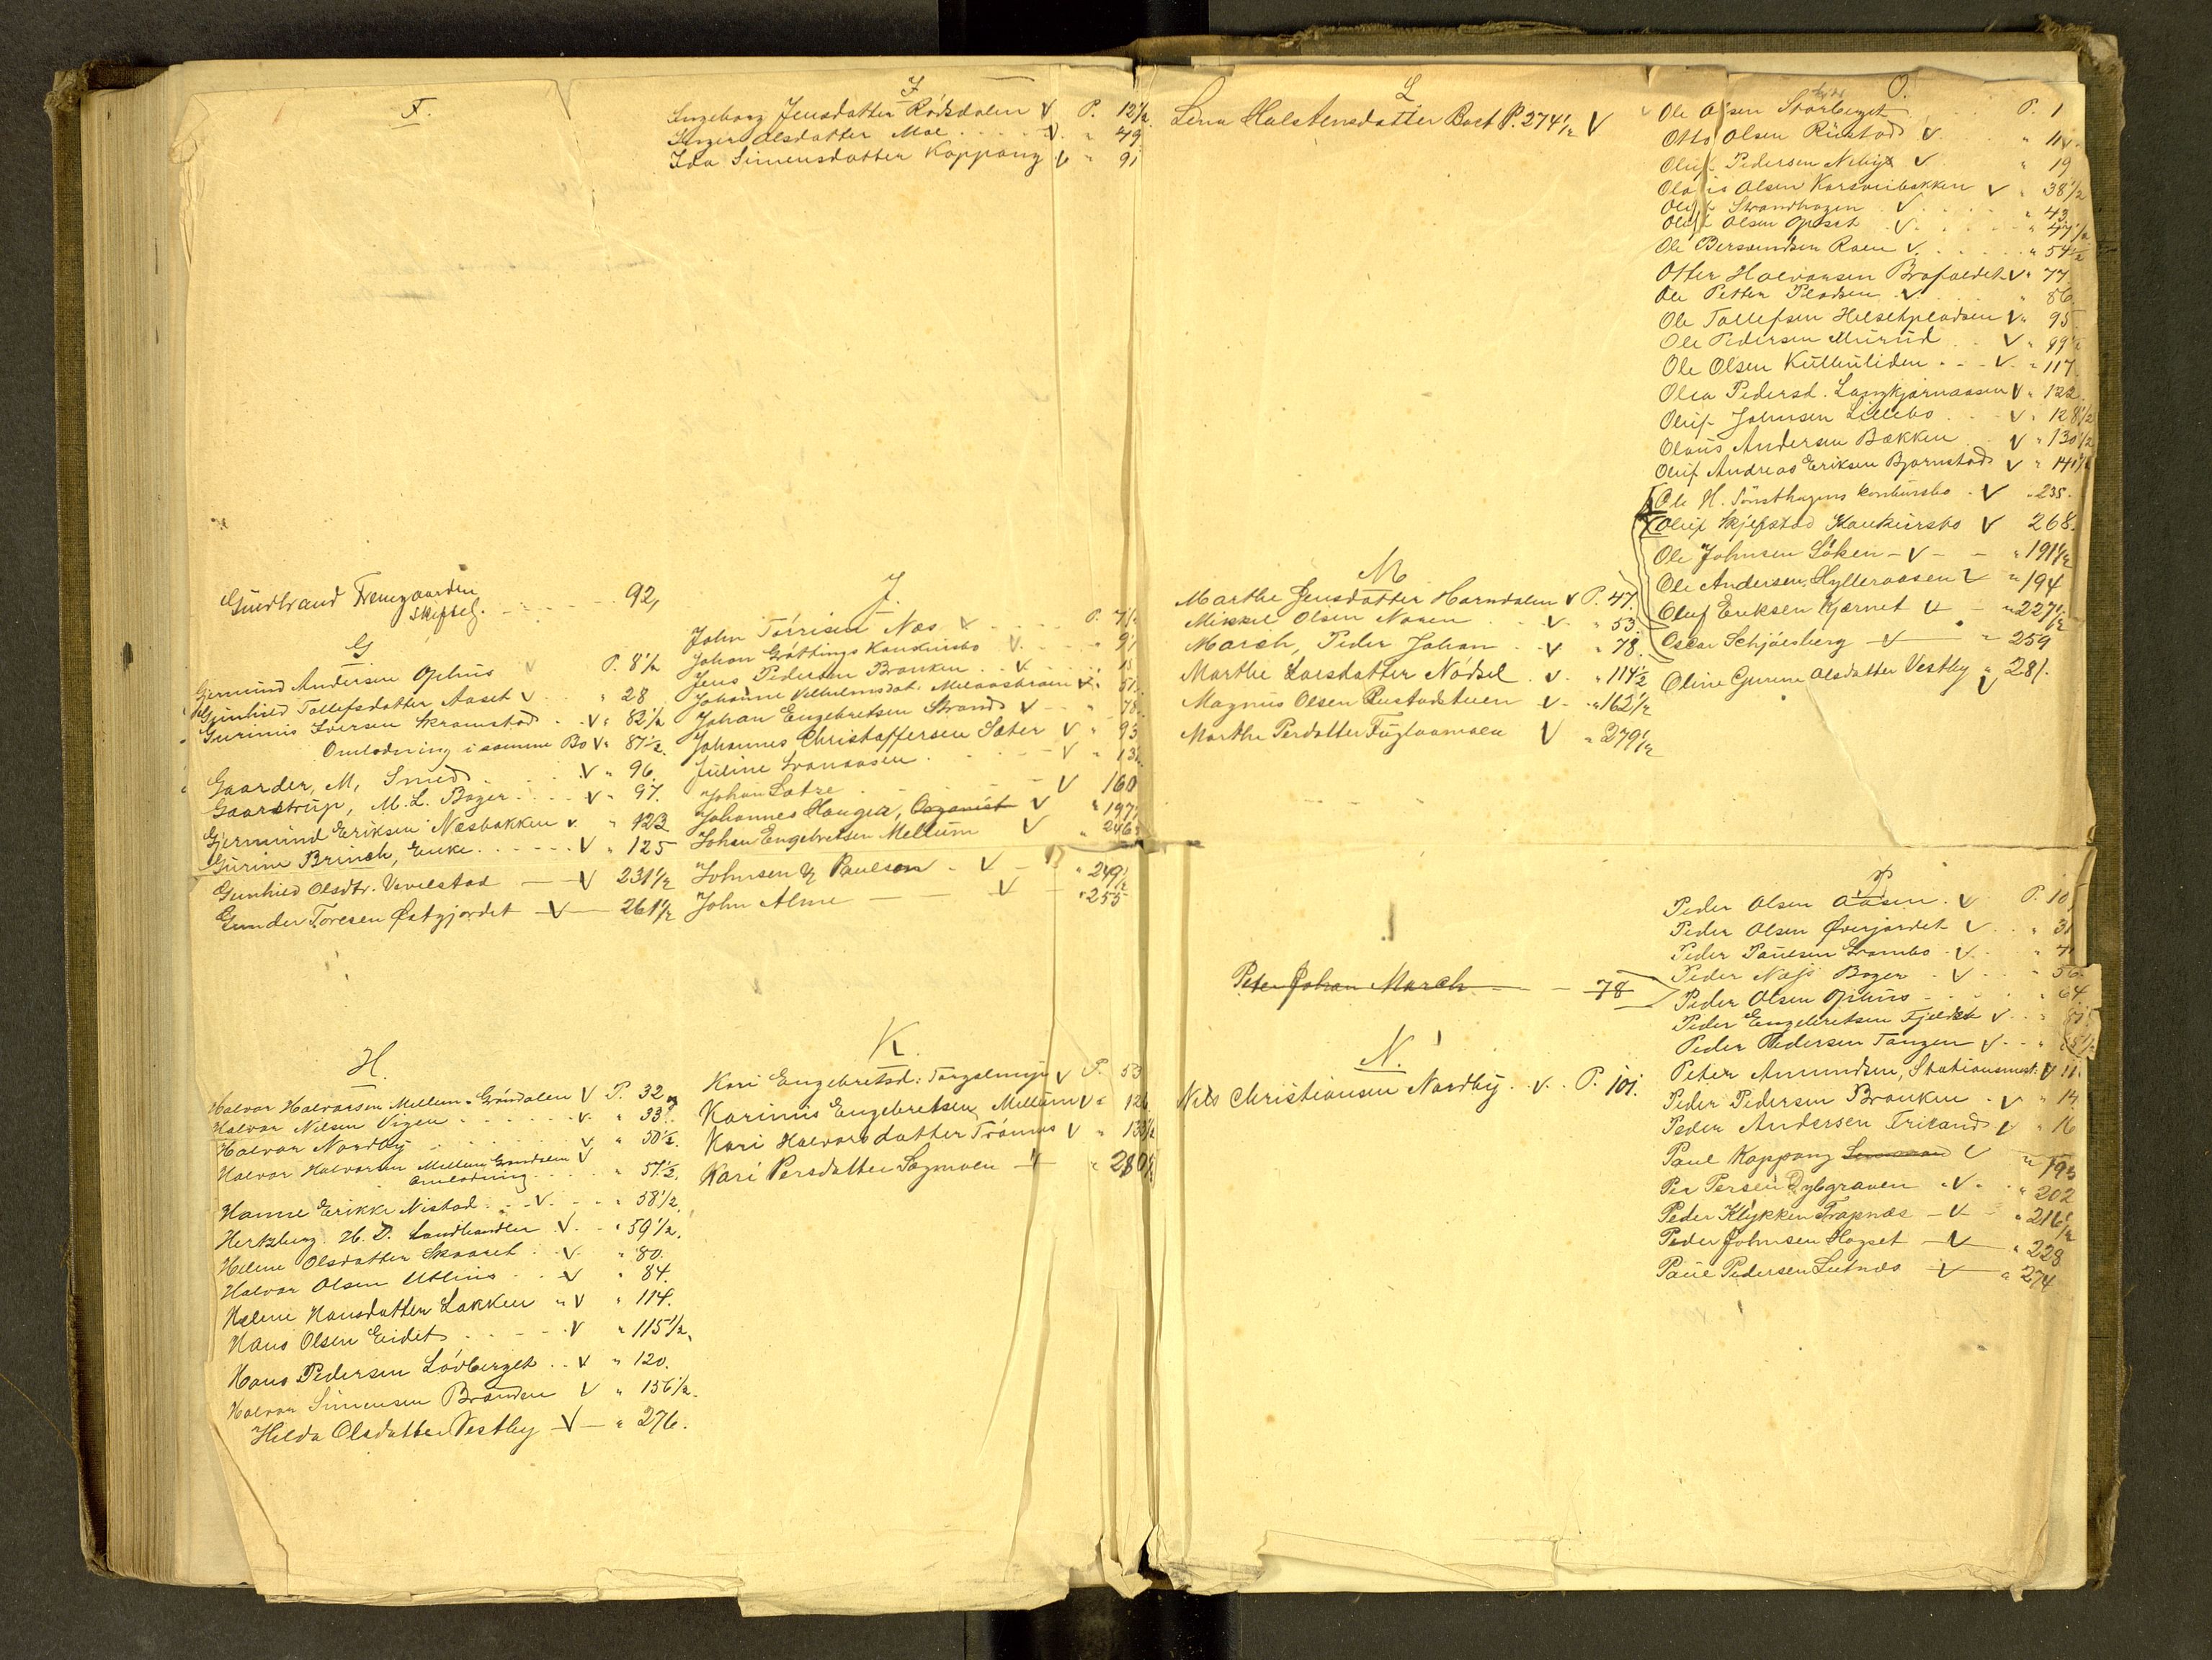 F.
Gudbrand Fremgaarden 92,
Skifselg.
G
Gjermund Andersen Ophus V P. 8 1/2
Gunhild Tollefsdatter Aaset V " 28
Gurinus Iversen Kramstad V " 82 1/2
Omlodning i samme Bo V " 87 1/2.
Gaarder, M, Smed V " 96.
Gaarstrup, M. L. Bager V " 97.
Gjermund Eriksen Næsbakken V " 123
Gurine Brinch, Enke V " 125
Gunhild Olsdtr. Vevelstad V 231 1/2
Gunder Toresen Østgjordet V 261 1/2
H.
Halvor Halvorsen Mellem-Gråndalen V P. 32
Halvor Nilsen Vigen V " 33
Halvor Nordby V " 50 1/2.
Halvor Halvorsen Mellem Grøndalen V
Omlodning " 57 1/2.
Hanne Erikke Nistad V " 58 1/2.
Hertzberg. H. D. Landhandler V " 59 1/2.
Helene Olsdatter Skaaret V " 80.
Halvor Olsen Uthus V " 84.
Helene Hansdatter Løkken V " 114.
Hans Olsen Eidet V " 115 1/2.
Hans Pedersen Lövberget V " 120.
Halvor Simensen Brænden V " 156 1/2.
Hilda Olsdatter Vestby V " 276.
I
Ingeborg Jensdatter Rödsdalen V P. 12 1/2
Inger Olsdatter Moe V " 49
Ida Simensdatter Koppang V " 91
J.
John Torrisen Næs V P. 7 1/2
Johan Gröttings Konkursbo V " 9
Jens Pedersen Bronken V " 15
Johanne Vilhelmsdat. V " 51
Johan Engebretsen Strand V " 78.
Johannes Christoffersen Sæter V " 93
Juline V " 13
Johan Sætre V 160
Johannes Haugen, Organist V " 197
Johan Engebretsen Mellum V " 246
Johnsen & Paulson V " 249 1/2
John Alme V " 255
K.
Kari Engebretsd: V P. 53
Karinus Engebretsen Mellum V " 126
Kari Halvorsdatter Trönnes V " 133 1/2
Kari Persdatter Sagmoen V " 280 1/2
L
Lena Halstensdatter Bact P. 274 1/2 V
M
Marthe Jensdatter Horndalen V P. 47.
Mikkel Olsen Noren V " 53
March, Peder Johan V " 78.
Marthe Larsdatter Nödsel V " 114 1/2
Magnus Olsen Rustadstuen V " 162 1/2
Marthe Perdatter Fuglaamoen V " 279 1/2
Peter Johan March 78
N.
Nils Christiansen Nordby V P. 101.
O.
Ole Olsen Storberget P. 1
Otto Olsen Rustad V " 11
Oluf Pedersen Neby V " 19
Olaus Olsen Karsveibakken V " 38 1/2
Oluf Strandhagen V " 43
Oluf Olsen Opsat V " 47 1/2
Ole Bersvendsen Roen V " 54 1/2
Otter Halvorsen Brofaldet V " 77
Ole Petter Pladsen V " 86
Ole Tollefsen Helsetpladsen V " 95
Ole Pedersen Murud V " 99 1/2
Ole Olsen Kulluliden V " 117
Olea Pedersd. Langkjærnaasen V " 122
Oluf Johnsen Lillebo V " 128 1/2
Olaus Andersen Bakken V " 130 1/2
Oluf Andreas Eriksen Bjørnstad V " 141 1/2
Ole H. Sönsthagens konkursbo V " 235.
Oluf Skjefstad Konkursbo V 268.
Ole Johnsen Söken V " 191 1/2
Ole Andersen, Hylleraasen V " 194
Oluf Eriksen Kjærnet V " 227 1/2
Oscar Schjölberg V " 259
Oline Gurene Olsdatter Vestby V " 281.
P
Peder Olsen Aasen V P. 10
Peder Olsen Øverjordet V " 31
Peder Paulsen Grambo V " 4
Peder Næss Bager V " 56
Peder Olsen Ophus " 64
Peder Engebretsen Fjeldset V " 81
Peder Pedersen Tangen V " 85 1/2
Peter Amundsen, Stationsmest. V 11
Peder Pedersen Bronken V " 14
Peder Andersen Trisand V " 16
Paul Koppang V " 195
Per Persen Dybgraven V " 202
Peder Klykken Trapnæs V " 216 1/2
Peder Johnsen Hagset V " 228
Paul Pedersen Lutnæs V " 274